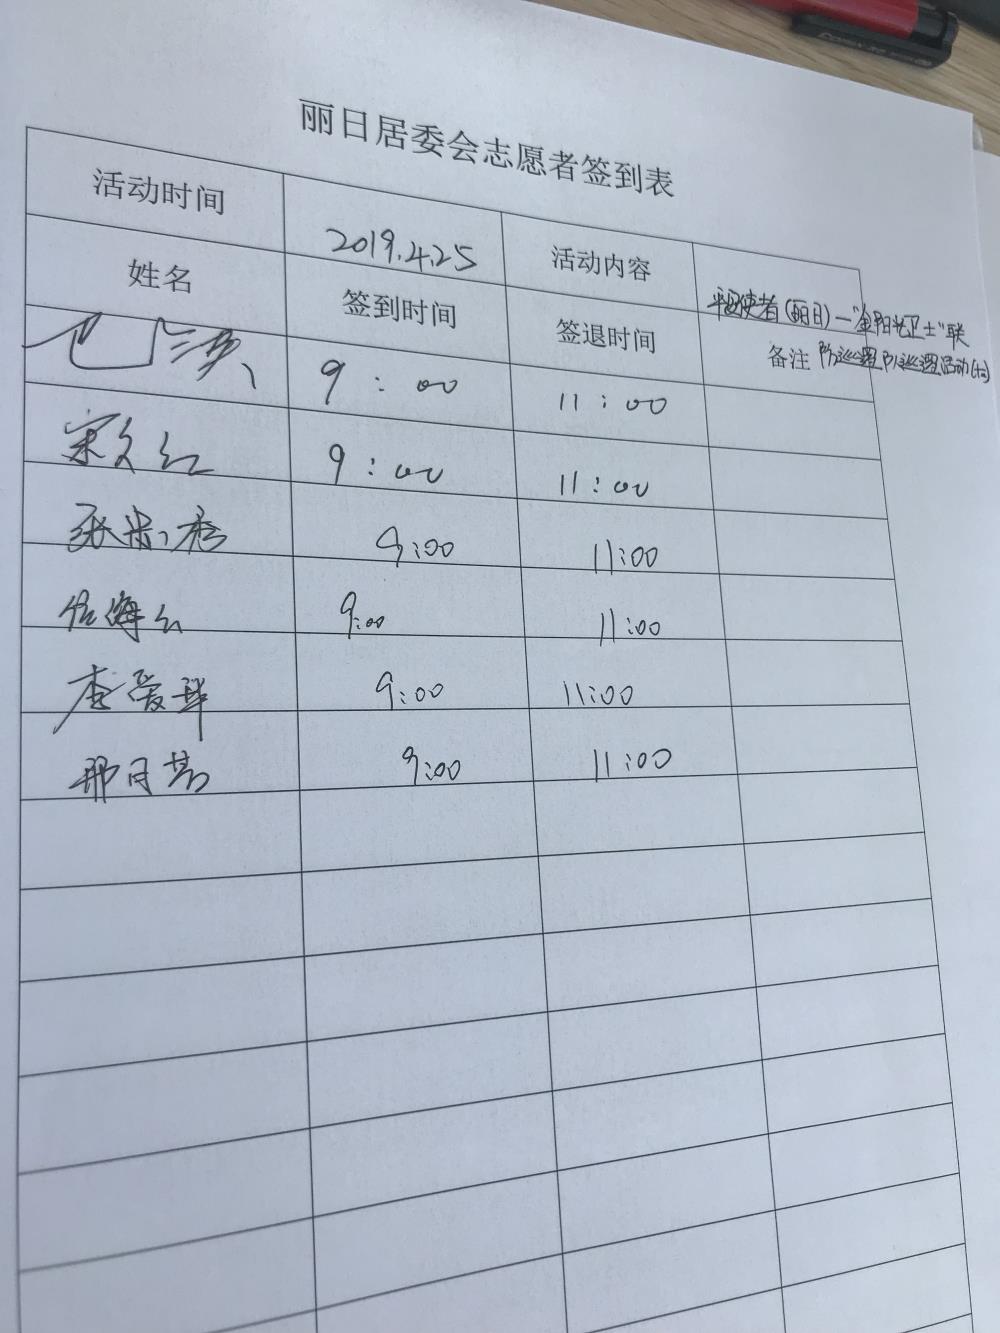 丽日居委会志愿者签到表
活动时间 2019.4.25 活动内容 使者(丽日)—"金阳光卫士"联
姓名 签到时间 签退时间 备注
9:00 11:00
宋文红 9:00 11:00
张米秀 9:00 11:00
海 9:00 11:00
李爱华 9:00 11:00
那日苏 9:00 11:00